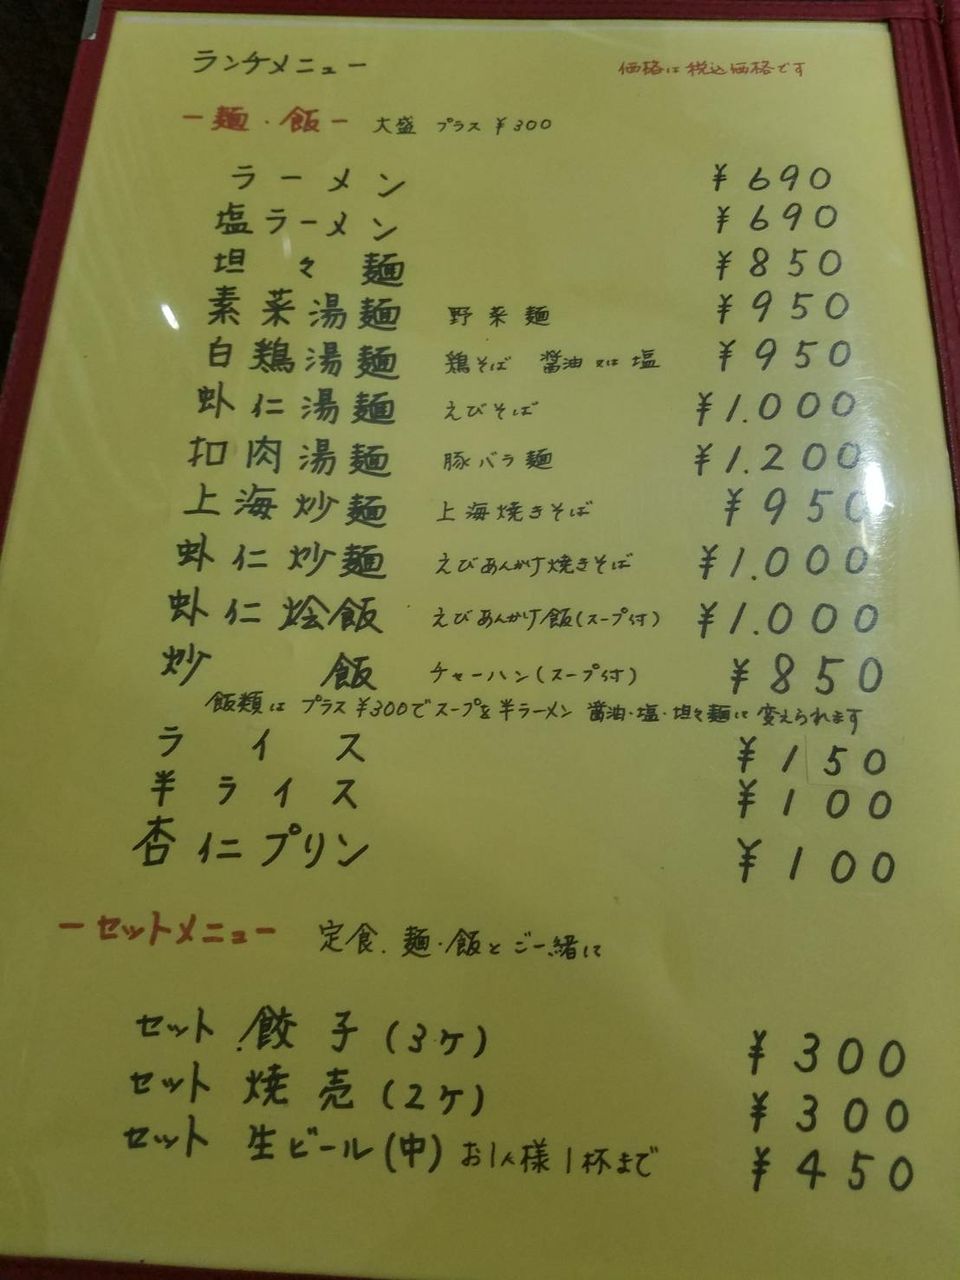 ランチメニュー 価格は税込価格です
ー麺・飯ー 大盛 プラス ¥300
ラーメン ¥690
塩ラーメン ¥690
坦々麺 ¥850
素菜湯麺 野菜麺 ¥950
白鶏湯麺 鶏そば 醤油又は塩 ¥950
虾仁湯麺 えびそば ¥1.000
扣肉湯麺 豚バラ麺 ¥1.200
上海炒麺 上海焼きそば ¥950
虾仁炒麺 えびあんかけ焼きそば ¥1.000
虾仁烩飯 えびあんかけ飯(スープ付) ¥1.000
炒飯 チャーハン(スープ付) ¥850
飯類は プラス ¥300でスープを半ラーメン 醤油・塩・坦々麺に変えられます
ライス ¥150
半ライス ¥100
杏仁プリン ¥100
ーセットメニューー 定食.麺・飯とご一緒に
セット 餃子(3ケ) ¥300
セット 焼売(2ケ) ¥300
セット 生ビール(中) お1人様1杯まで ¥450